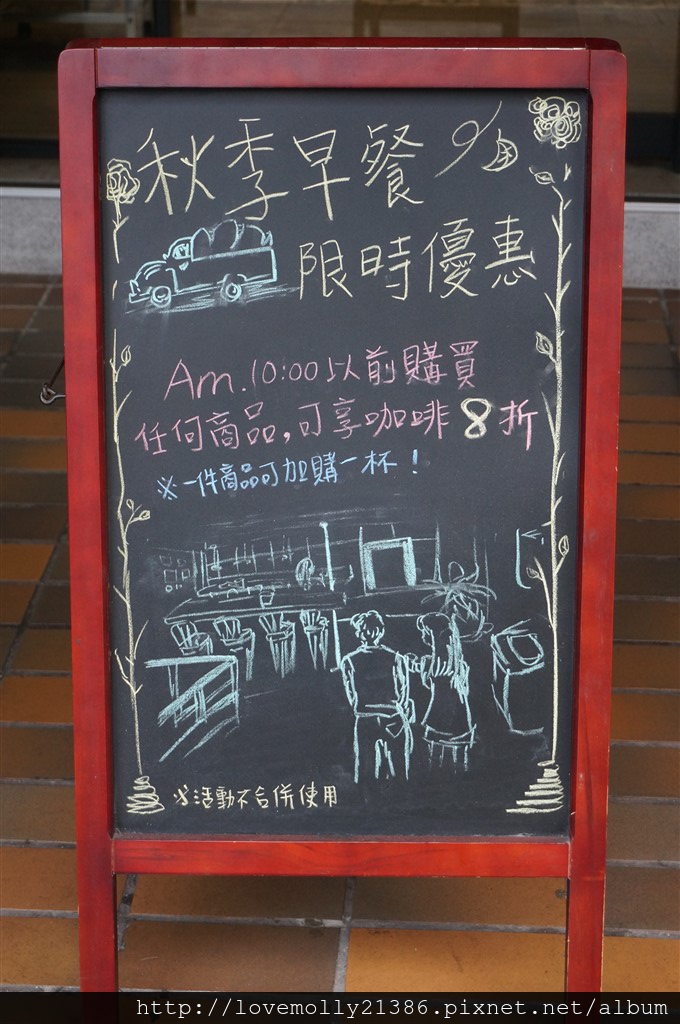 秋季早餐
限時優惠
Am.10:00以前購買
任何商品,可享咖啡8折
※一件商品可加購一杯！
※活動不合併使用
http://lovemolly21386.pixnet.net/album